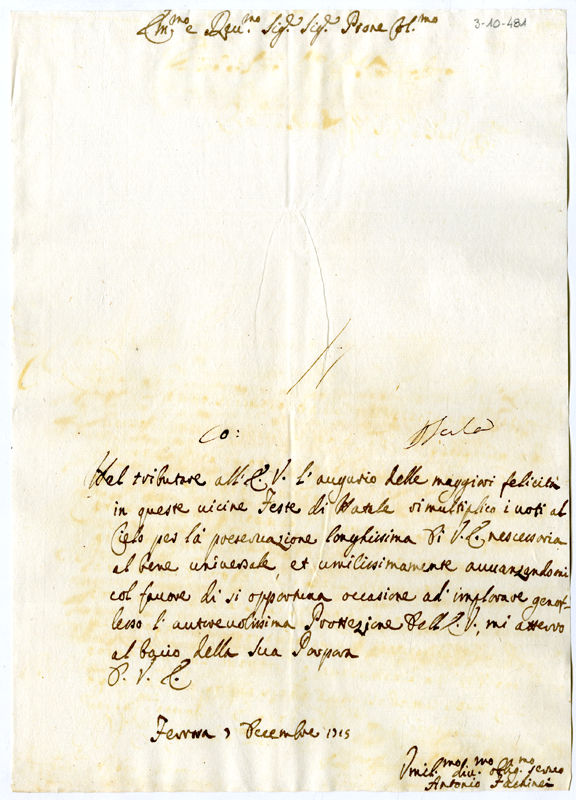 Em.mo e Reu.mo Sig.r Sig.r Prone Col.mo
3-10-481
Co:
Nel tributare all' E. V. l'augurio delle maggiori felicità
in queste uicine Feste di Natale rimultiplico i uoti al
Cielo per la preseruazione longhissima di V. E. nescessaria
al bene uniuersale, et umilissimamente auuanzandomi
col fauore di si opportuna occasione ad' implorare genof-
lesso l'autoreuolissima Protezzione dell' E. V., mi atterro
al bacio della Sua Porpora
D. V. E.
Ferrara Decembre 1715
Vmil.mo diu.mo oblig.mo seruo
Antonio Fachinei